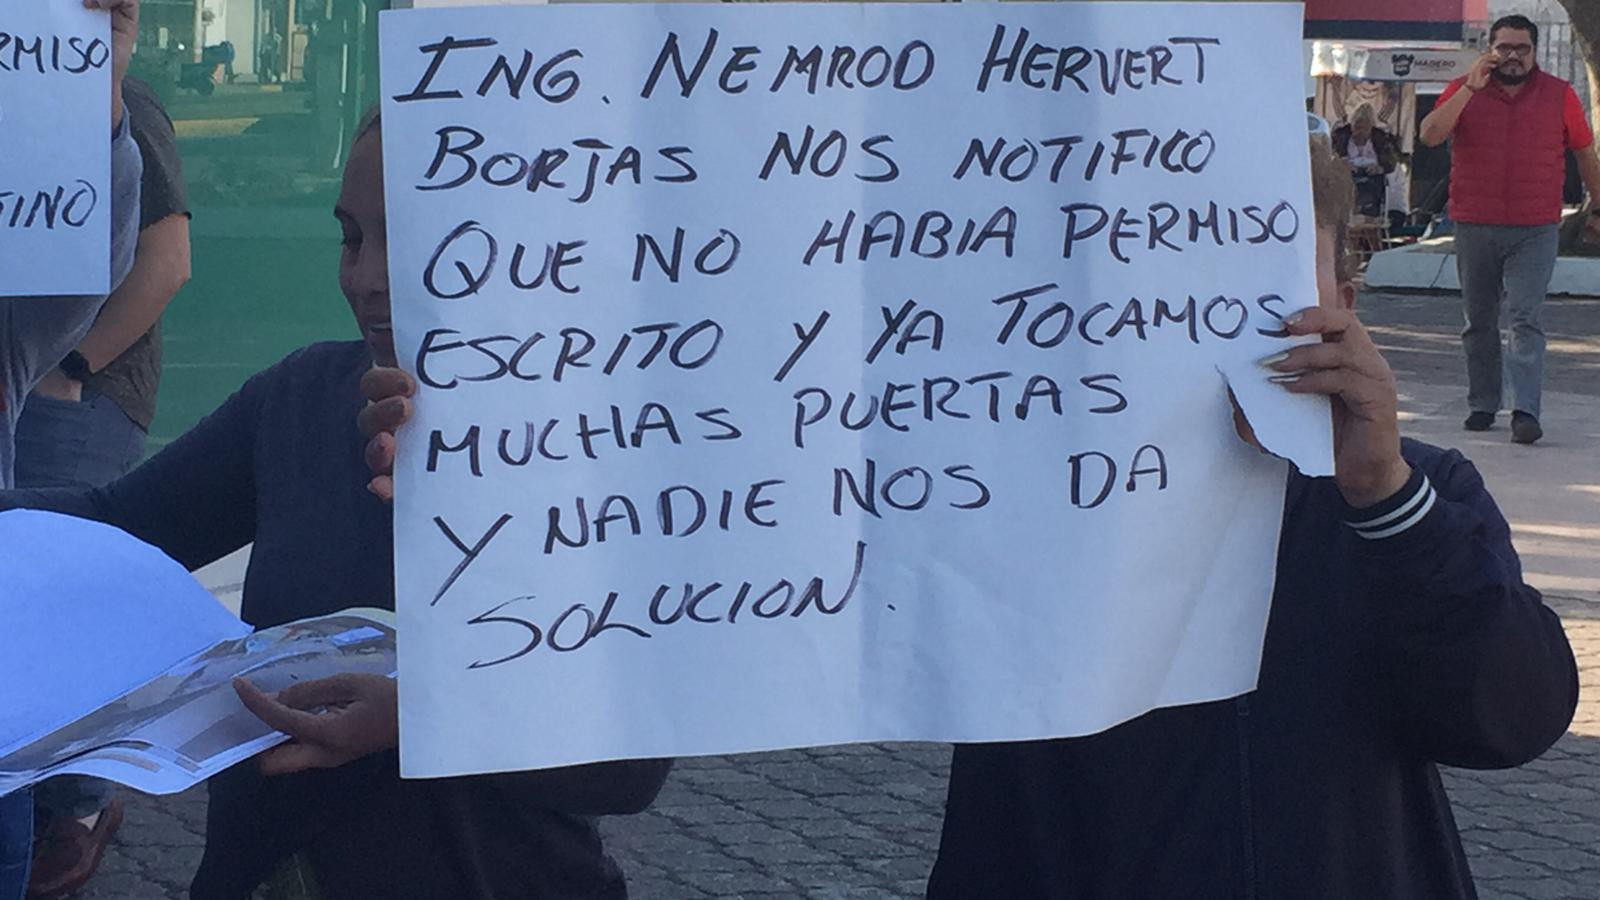 RMISO
TINO
ING. NEMROD HERVERT
BORJAS NOS NOTIFICO
QUE NO HABIA PERMISO
ESCRITO Y YA TOCAMOS
MUCHAS PUERTAS
Y NADIE NOS DA
SOLUCION.
MADERO